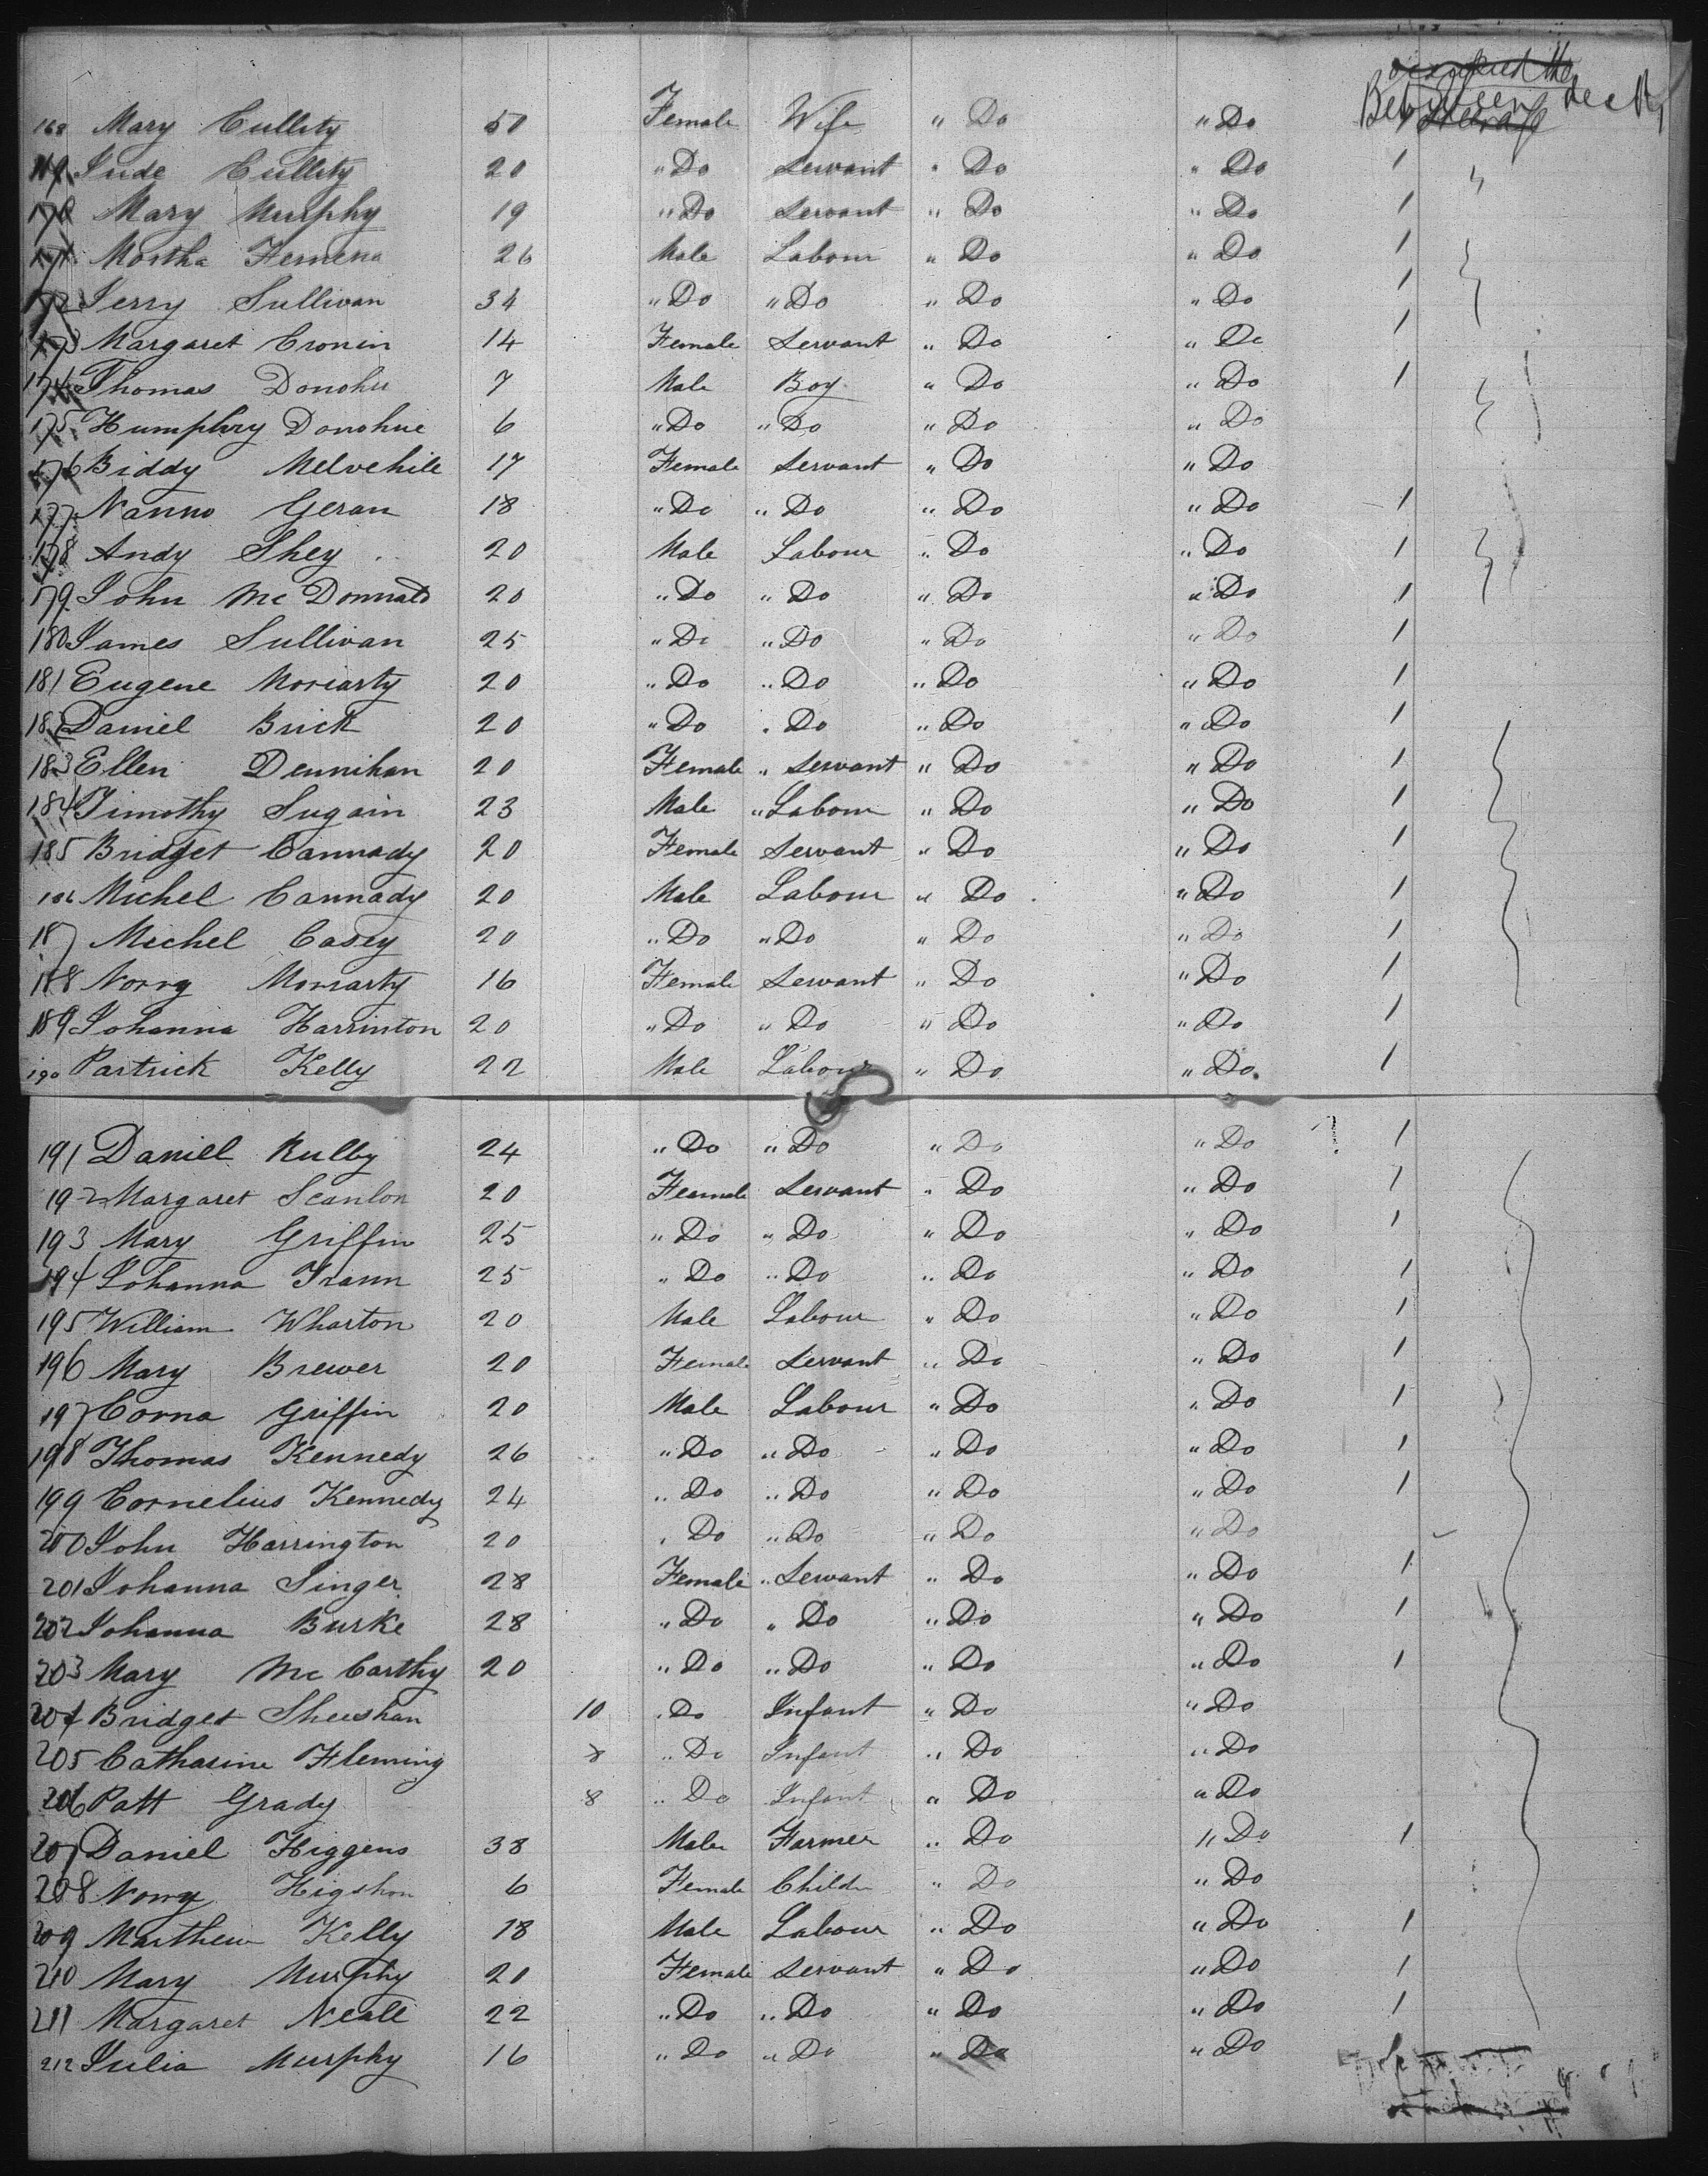 Between decks
168 Mary Cullity 50 Female Wife " Do " Do
169 Jude Cullity 20 " Do Servant " Do " Do 1
170 Mary Murphy 19 " Do Servant " Do " Do 1
171 Mortha 26 Male Labour " Do " Do 1
172 Jerry Sullivan 34 " Do " Do " Do " Do 1
173 Margaret Cronin 14 Female Servant " Do " Do 1
174 Thomas Donohu 7 Male Boy " Do " Do 1
175 Humphry Donohue 6 " Do " Do " Do " Do
176 Biddy Melvehile 17 Female Servant " Do " Do
177 Nanno Geran 18 " Do " Do " Do " Do 1
178 Andy Shey 20 Male Labour " Do " Do 1
179 John Mc Donnald 20 " Do " Do " Do " Do 1
180 James Sullivan 25 " Do " Do " Do " Do 1
181 Eugene Moriarty 20 " Do " Do " Do " Do 1
182 Daniel Brick 20 " Do " Do " Do " Do 1
183 Ellen Dennihan 20 Female " Servant " Do " Do 1
184 Timothy Sugain 23 Male " Labour " Do " Do 1
185 Bridget Cannady 20 Female Servant " Do " Do 1
186 Michel Cannady 20 Male Labour " Do " Do 1
187 Michel Casey 20 " Do " Do " Do " Do 1
188 Norry Moriarty 16 Female Servant " Do " Do 1
189 Johanna Harrinton 20 " Do " Do " Do " Do 1
190 Partrick Kelly 22 Male Labour " Do " Do 1
191 Daniel Kulby 24 " Do " Do " Do " Do 1
192 Margaret Scanlon 20 Feamale Servant " Do " Do 1
193 Mary Griffin 25 " Do " Do " Do " Do 1
194 Johanna Frann 25 " Do " Do " Do " Do 1
195 William Wharton 20 Male Labour " Do " Do 1
196 Mary Brewer 20 Female Servant " Do " Do 1
197 Corna Griffin 20 Male Labour " Do " Do 1
198 Thomas Kennedy 26 " Do " Do " Do " Do 1
199 Cornelius Kennedy 24 " Do " Do " Do " Do 1
200 John Harrington 20 " Do " Do " Do " Do
201 Johanna Singer 28 Female " Servant " Do " Do 1
202 Johanna Burke 28 " Do " Do " Do " Do 1
203 Mary Mc Carthy 20 " Do " Do " Do " Do 1
204 Bridget Sheeshan 10 " Do Infant " Do " Do
205 Catharine Fleming 8 " Do Infant " Do " Do
206 Patt Grady 8 " Do Infant " Do " Do
207 Daniel Higgens 38 Male Farmer " Do " Do 1
208 Norry Higshon 6 Female Childe " Do " Do
209 Marthew Kelly 18 Male Labour " Do " Do 1
210 Mary Murphy 20 Female Servant " Do " Do 1
211 Margaret Neall 22 " Do " Do " Do " Do 1
212 Julia Murphy 16 " Do " Do " Do " Do